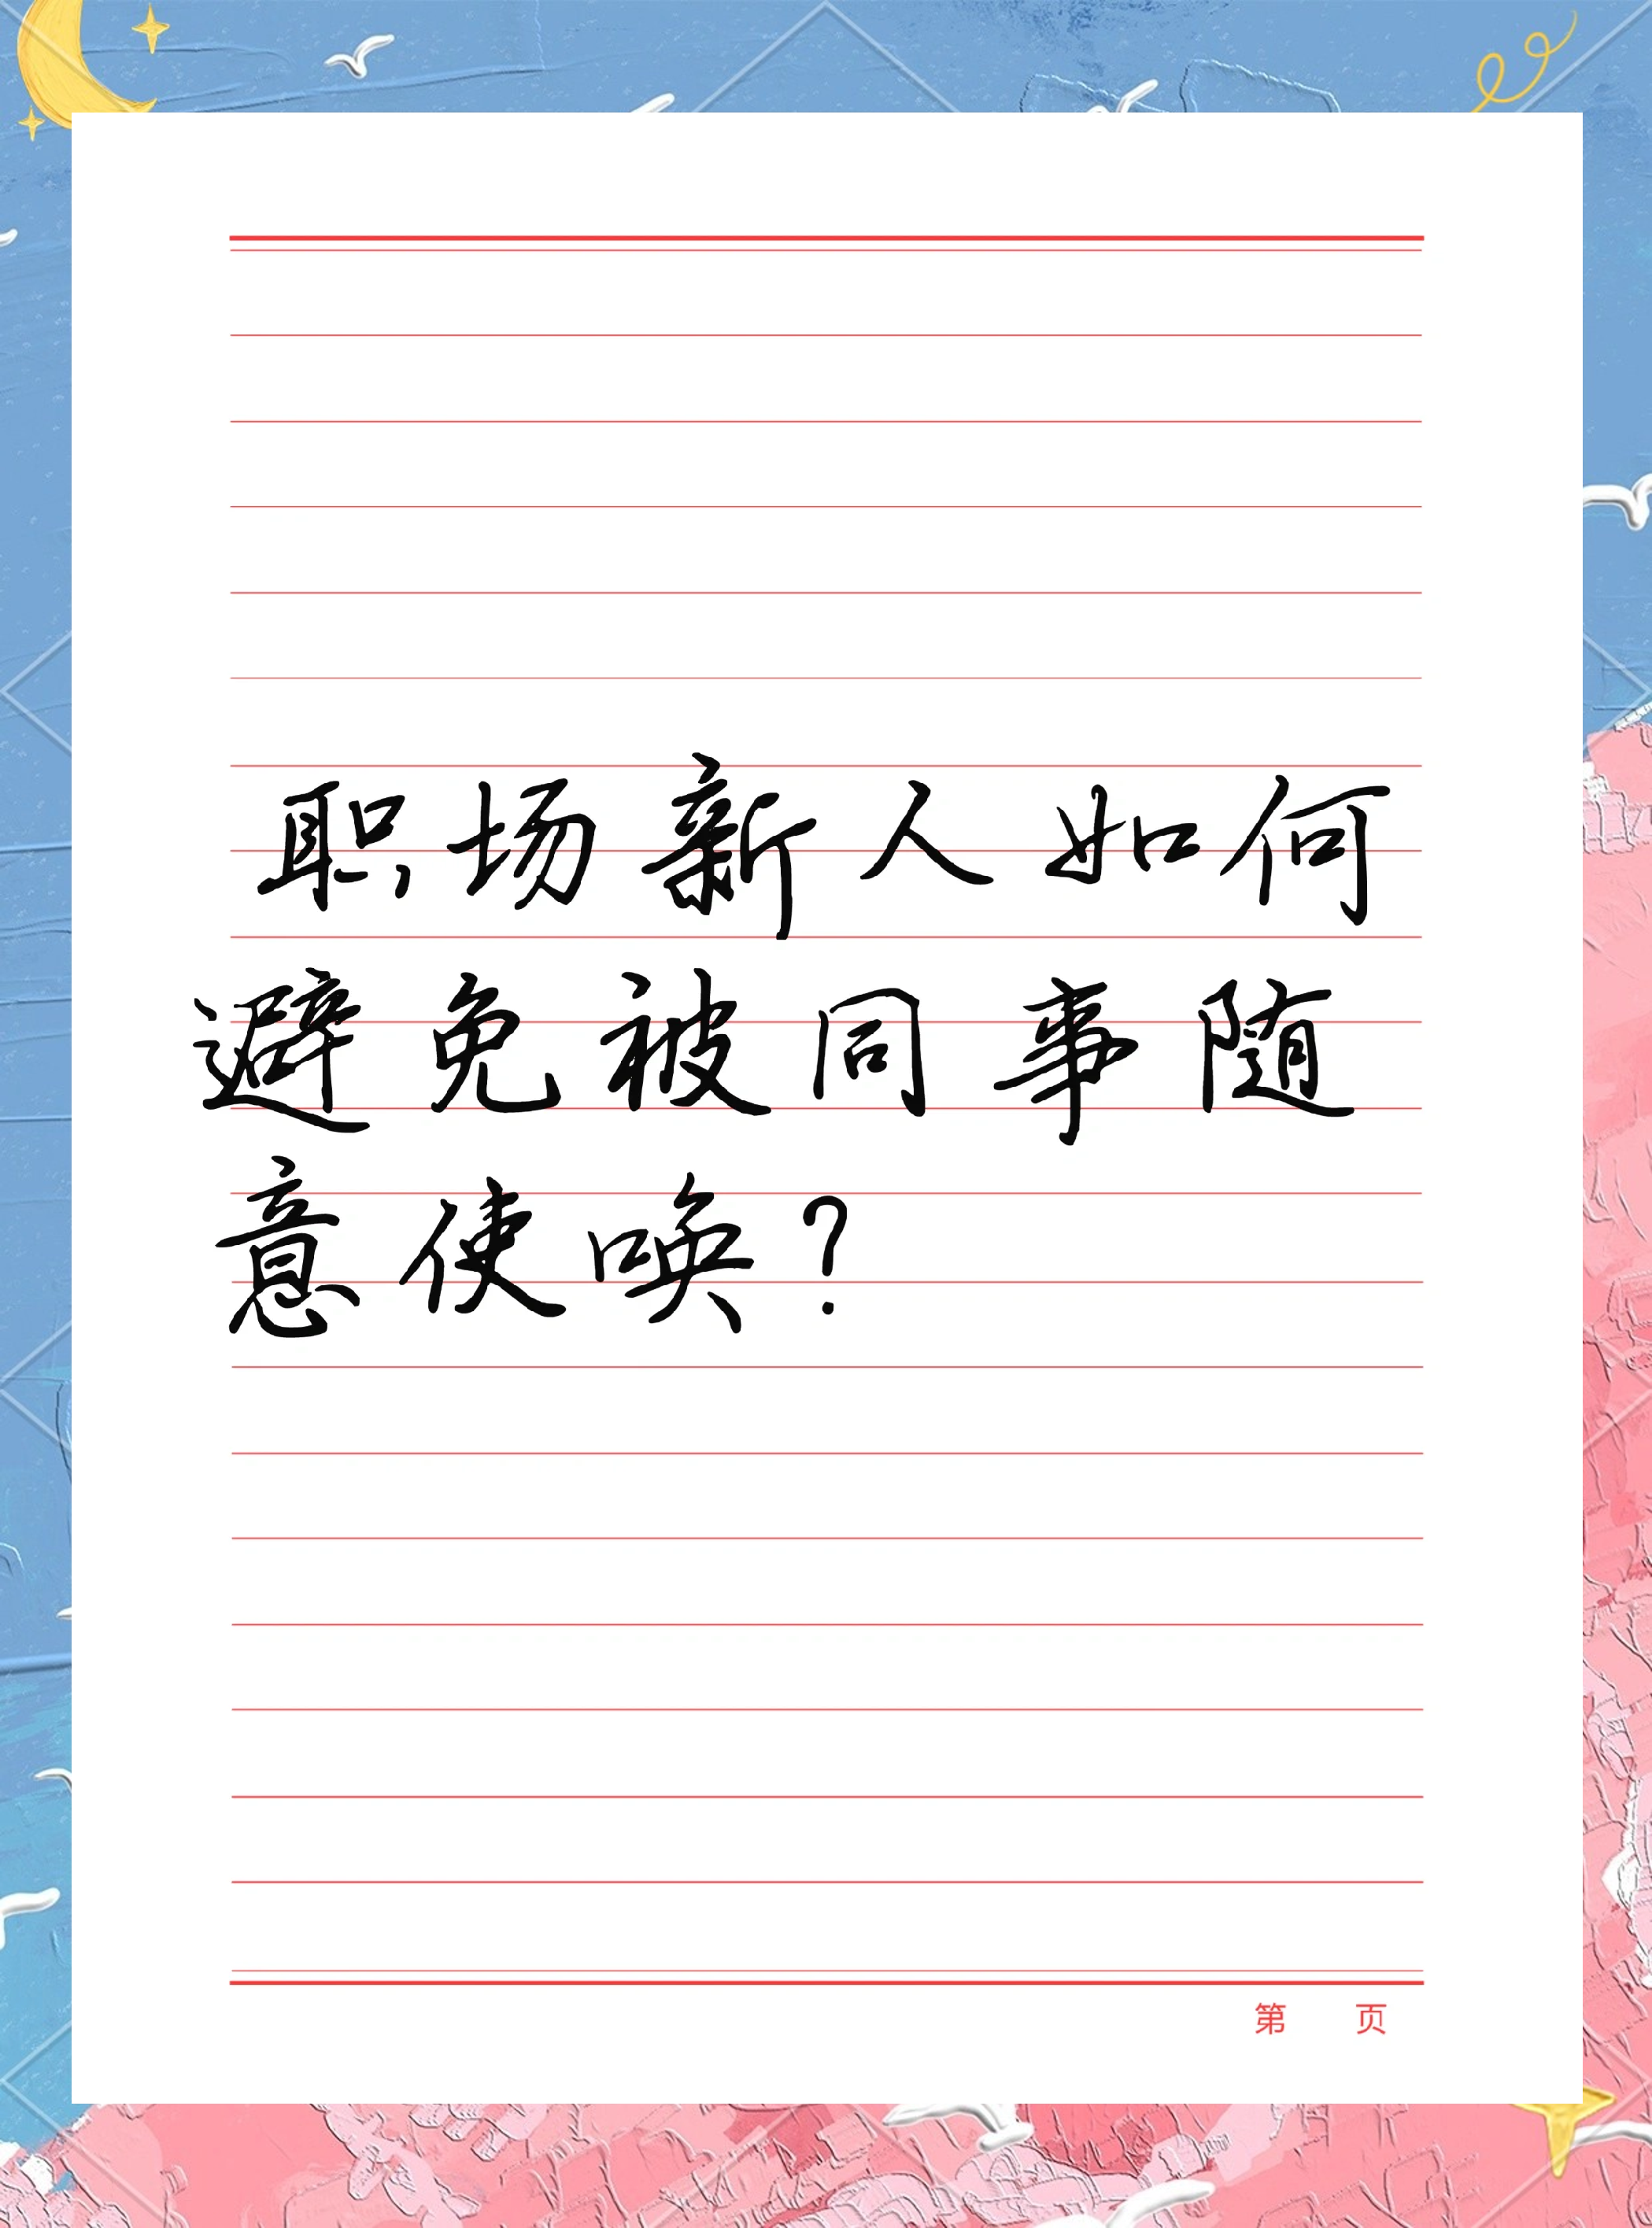 职场新人如何
避免被同事随
意使唤？
第 页